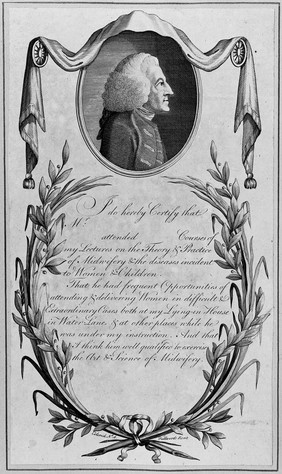 I do hereby Certify that
Mr.
attended Courses of
my Lectures on the Theory & Practice
of Midwifery & the diseases incident
to Women & Children.
That he had frequent Opportunities of
attending & delivering Women in difficult &
Extraordinary Cases both at my Lying-in House
in Water Lane, & at other places while he
was under my instruction. And that
I think him well qualified to exercise
the Art & Science of Midwifery.